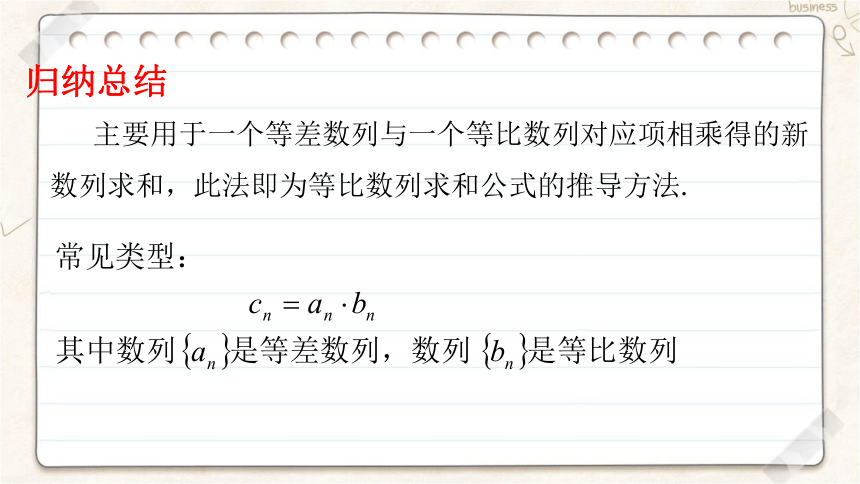 business
归纳总结
主要用于一个等差数列与一个等比数列对应项相乘得的新
数列求和，此法即为等比数列求和公式的推导方法.
常见类型：
cₙ = aₙ · bₙ
其中数列{aₙ}是等差数列，数列{bₙ}是等比数列